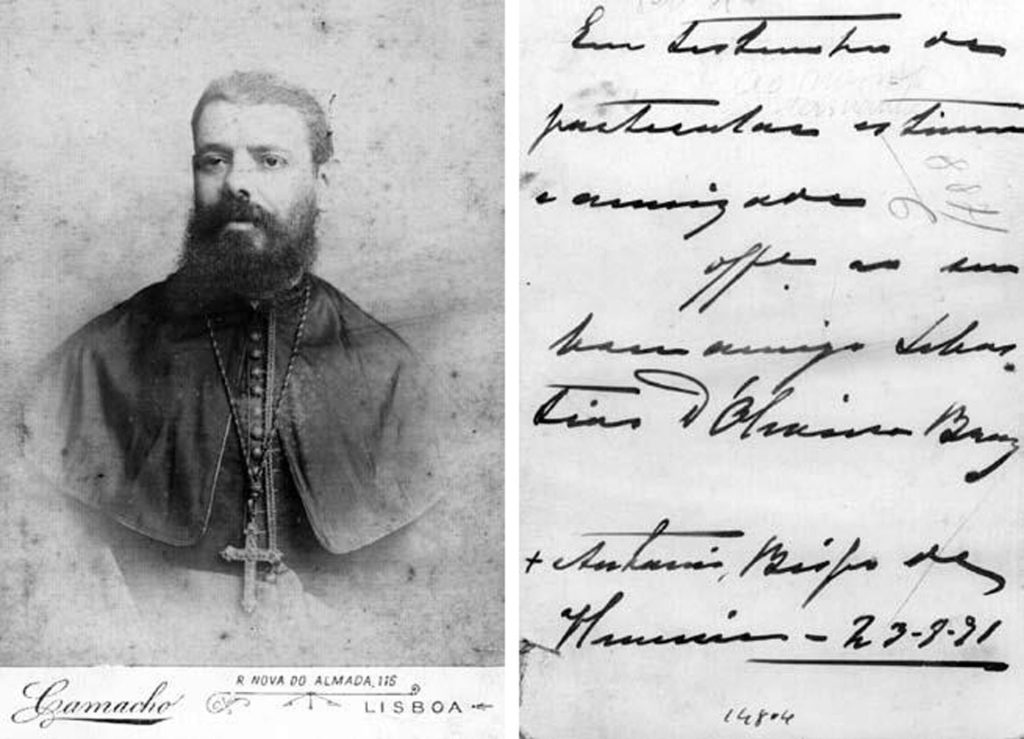 Camacho
R NOVA DO ALMADA, 116
LISBOA
Em testemunho de
particular estima
e amizade
offe ao seu
bom amigo Sebas-
tião d'Oliveira Braz
+ Antonio, Bispo de
Himeria - 23-9-91
2
488
14804